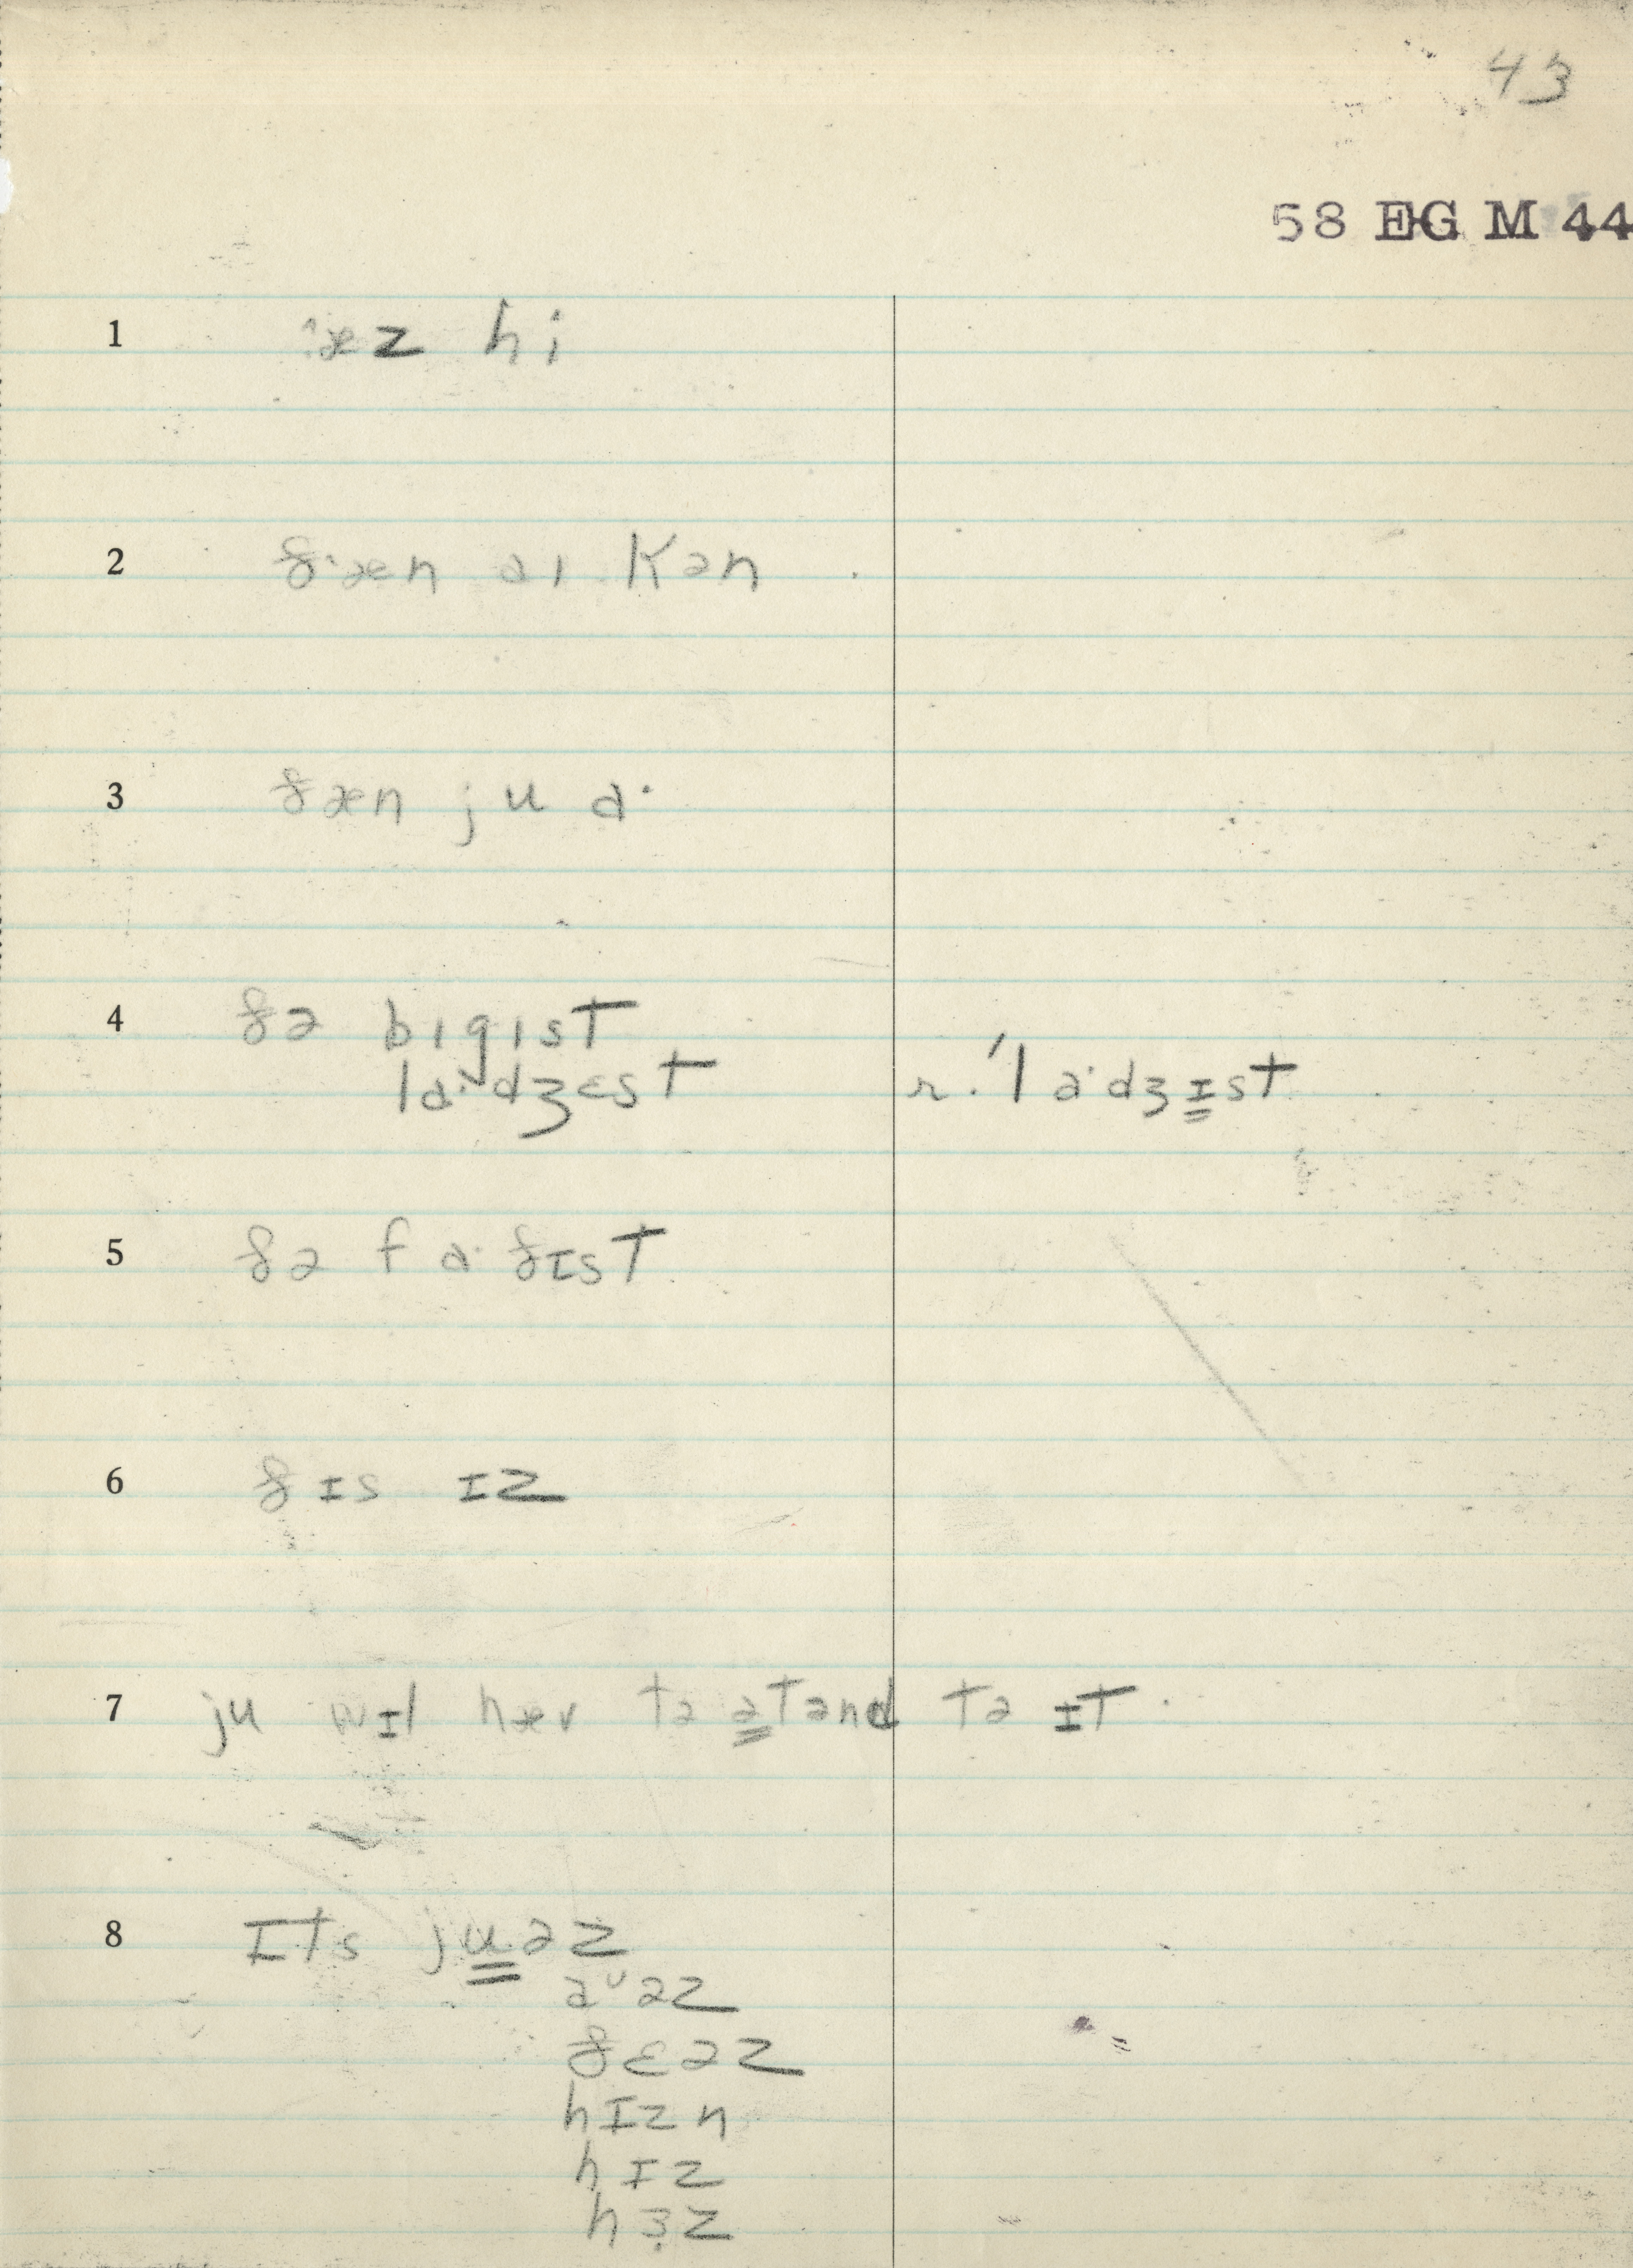 43
58 EG M 44
1 ˑæz hi
2 ðˑæn aɪ kən
3 ðæn ju aˑ
4 ðə bɪgɪst
laˑdʒɛst r. ˈlaˑdʒɪst
5 ðə faˑðɪst
6 ðɪs ɪz
7 ju wɪl hæv tə ətɛnd tə ɪt.
8 ɪts juəz
aᶸəz
ðɛəz
hɪzn
hɪz
hɜz